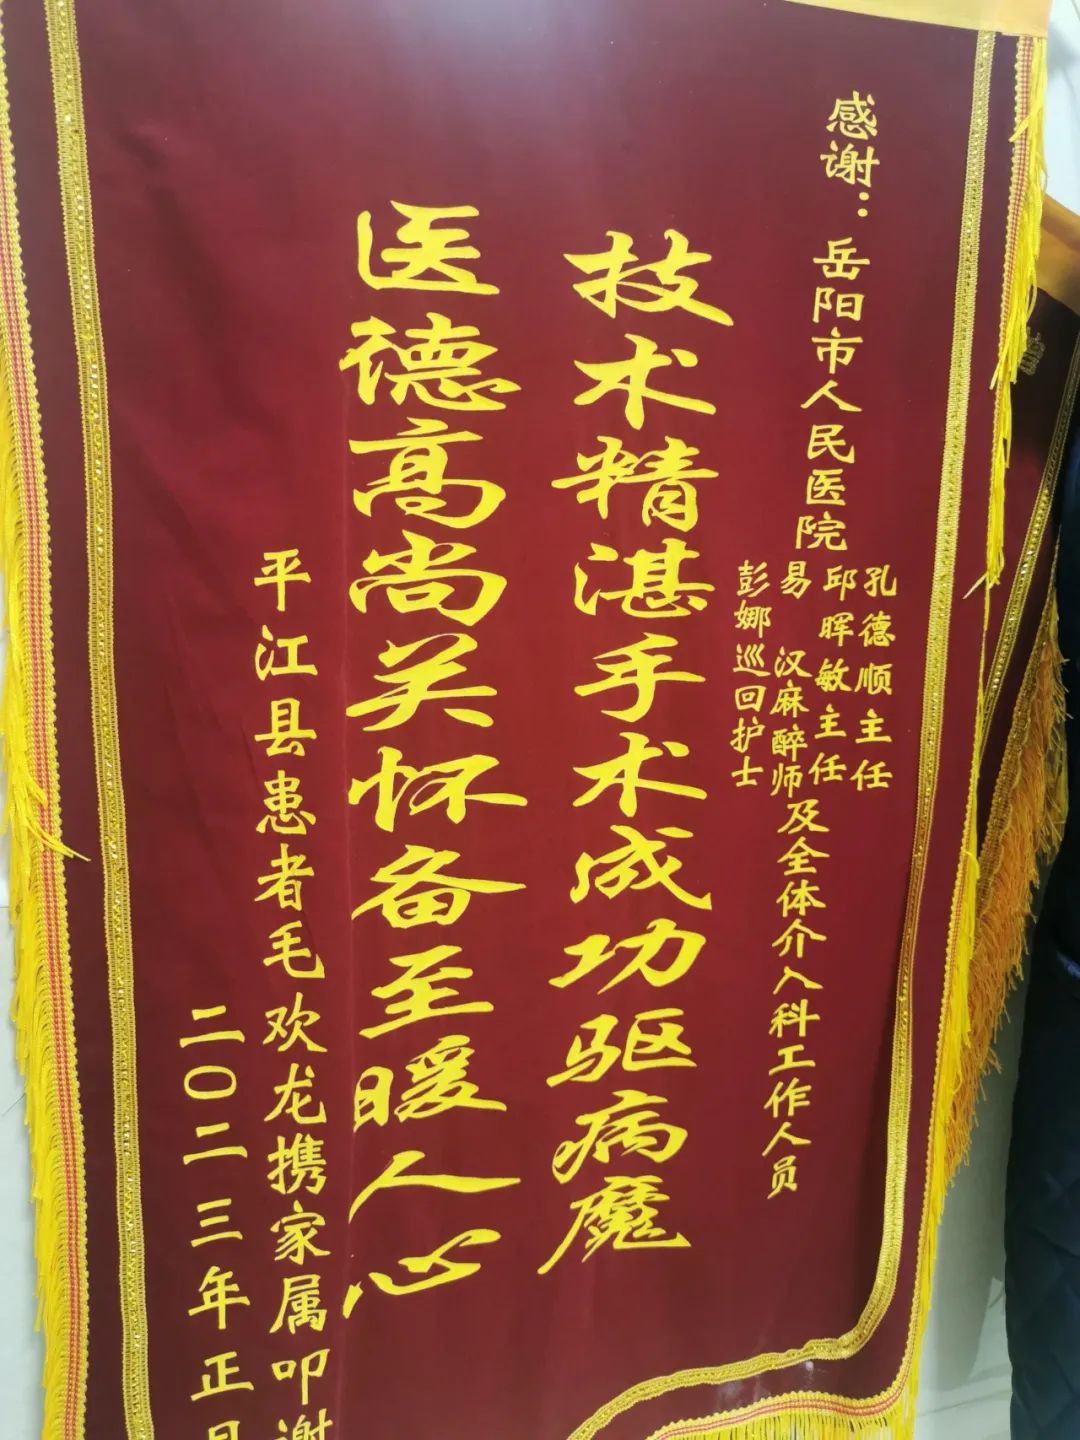 感谢：岳阳市人民医院
孔德顺主任
邱晖敏主任
易汉麻醉师
彭娜巡回护士
及全体介入科工作人员
技术精湛手术成功驱病魔
医德高尚关怀备至暖人心
平江县患者毛欢龙携家属叩谢
二〇二三年正月